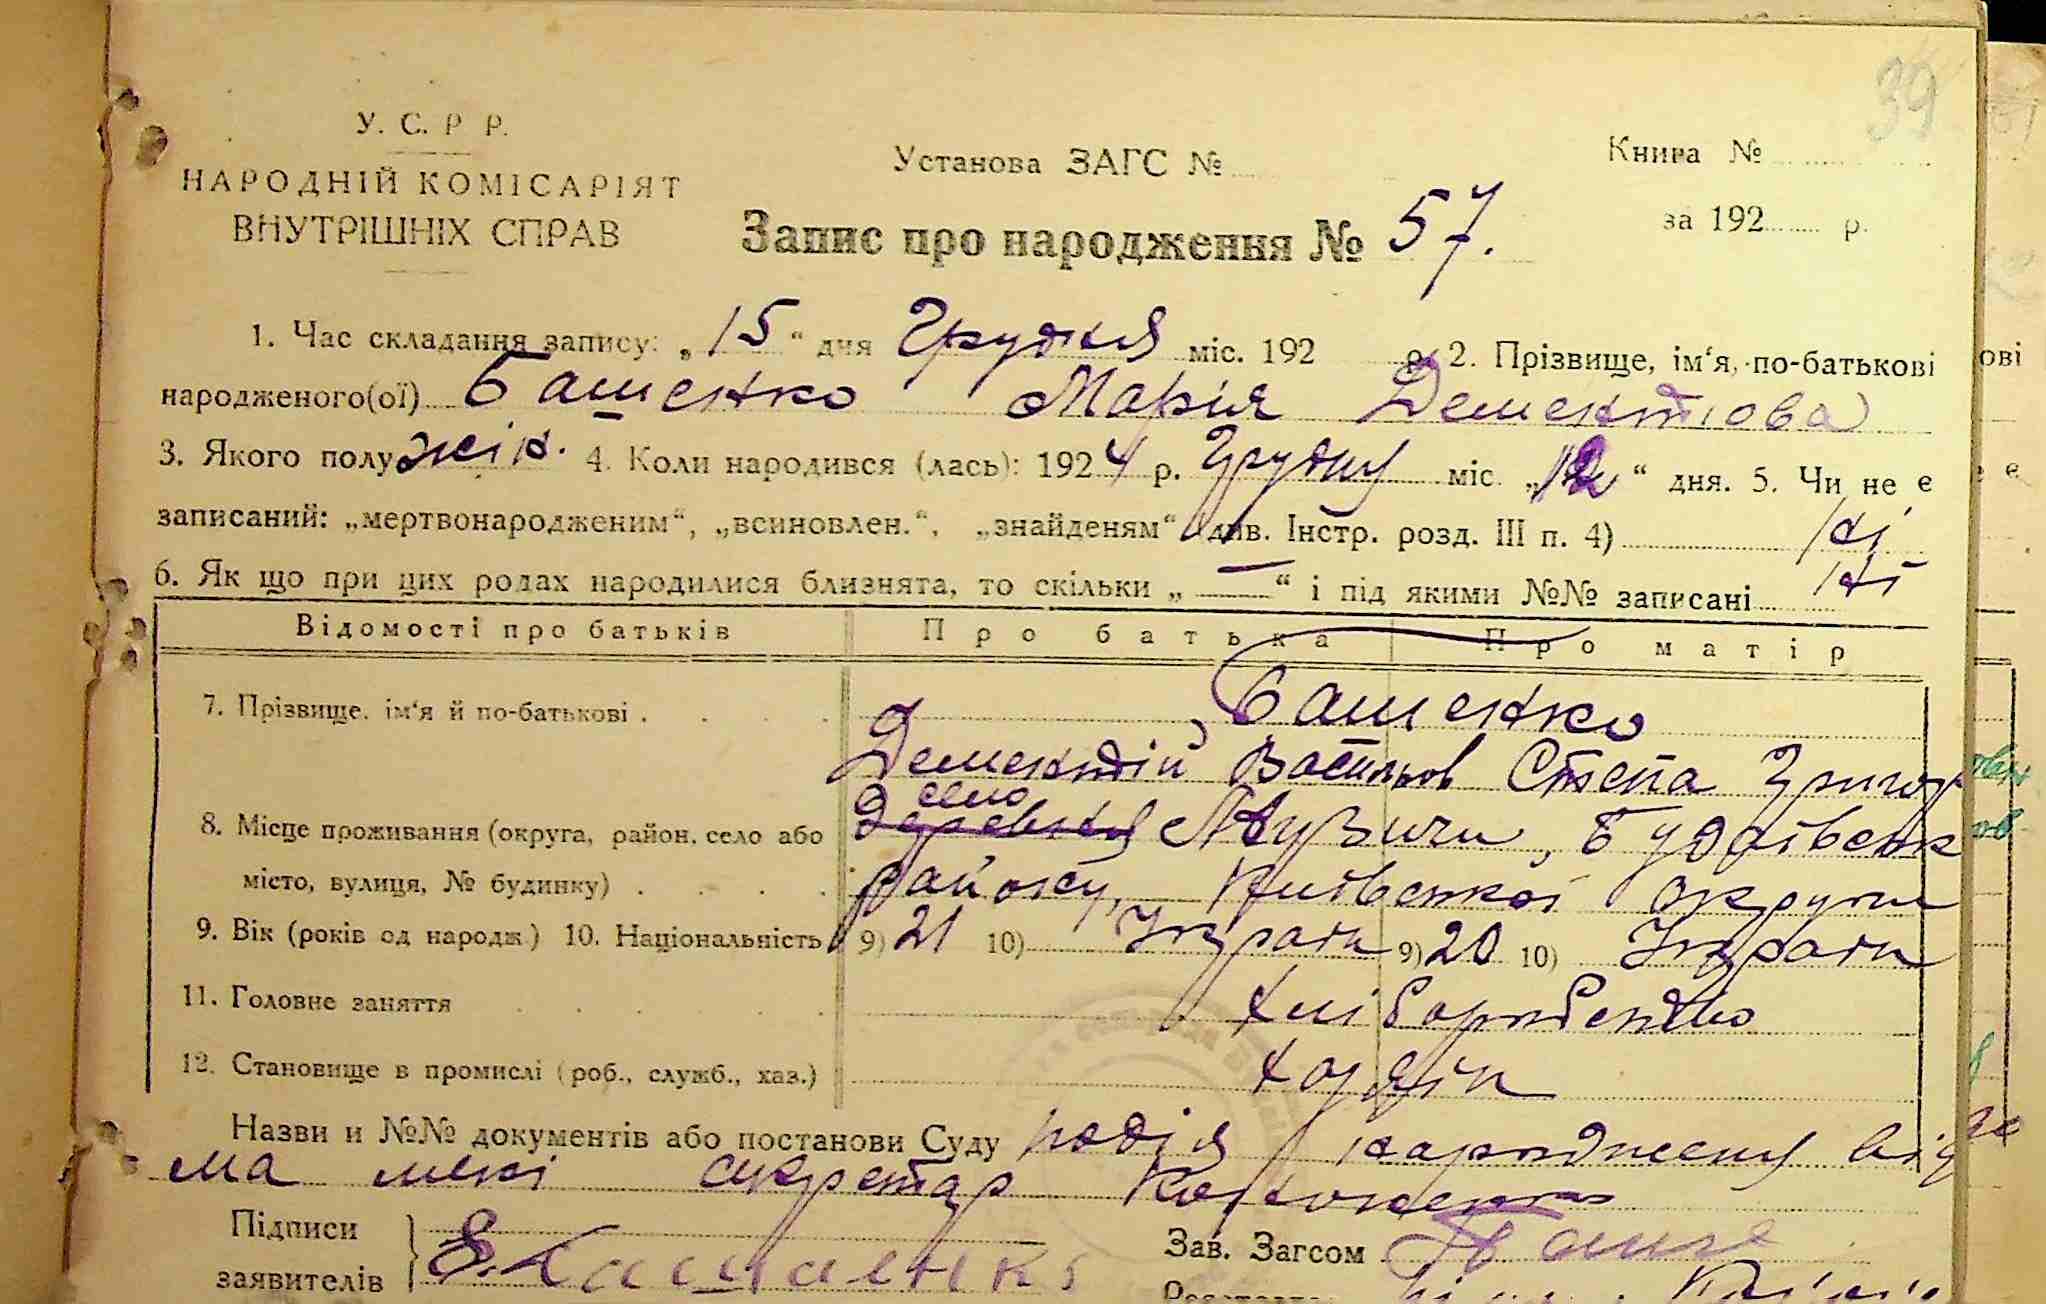 39
У. С. Р Р.
НАРОДНІЙ КОМІСАРІЯТ
ВНУТРІШНІХ СПРАВ
Установа ЗАГС №
Книга №
за 192 р.
Запис про народження № 57.
1. Час складання запису: „15“ дня Грудня міс. 192 р. 2. Прізвище, ім‘я, по-батькові
народженого(ої) Башенко Марія Дементіова
3. Якого полу жін. 4. Коли народився (лась): 1924 р. Грудну міс. „12“ дня. 5. Чи не є
записаний: „мертвонародженим“, „всиновлен.“, „знайденям“ (див. Інстр. розд. III п. 4) Ні
6. Як що при цих родах народилися близнята, то скільки „—“ і під якими №№ записані Ні
Відомості про батьків Про батька Про матір
7. Прізвище, ім‘я й по-батькові . Башенко
Дементій Васильов Степа Григор
село
8. Місце проживання (округа, район, село або Музичи, Будаївськ
місто, вулиця, № будинку) району, Київської округи
9. Вік (років од народж.) 10. Національність 9) 21 10) Украін 9) 20 10) Украін
11. Головне заняття Хліборобство
12. Становище в промислі (роб., служб., хаз.) Хозяін
Назви и №№ документів або постанови Суду
ма мені секретар
Підписи
заявителів
Зав. Загсом